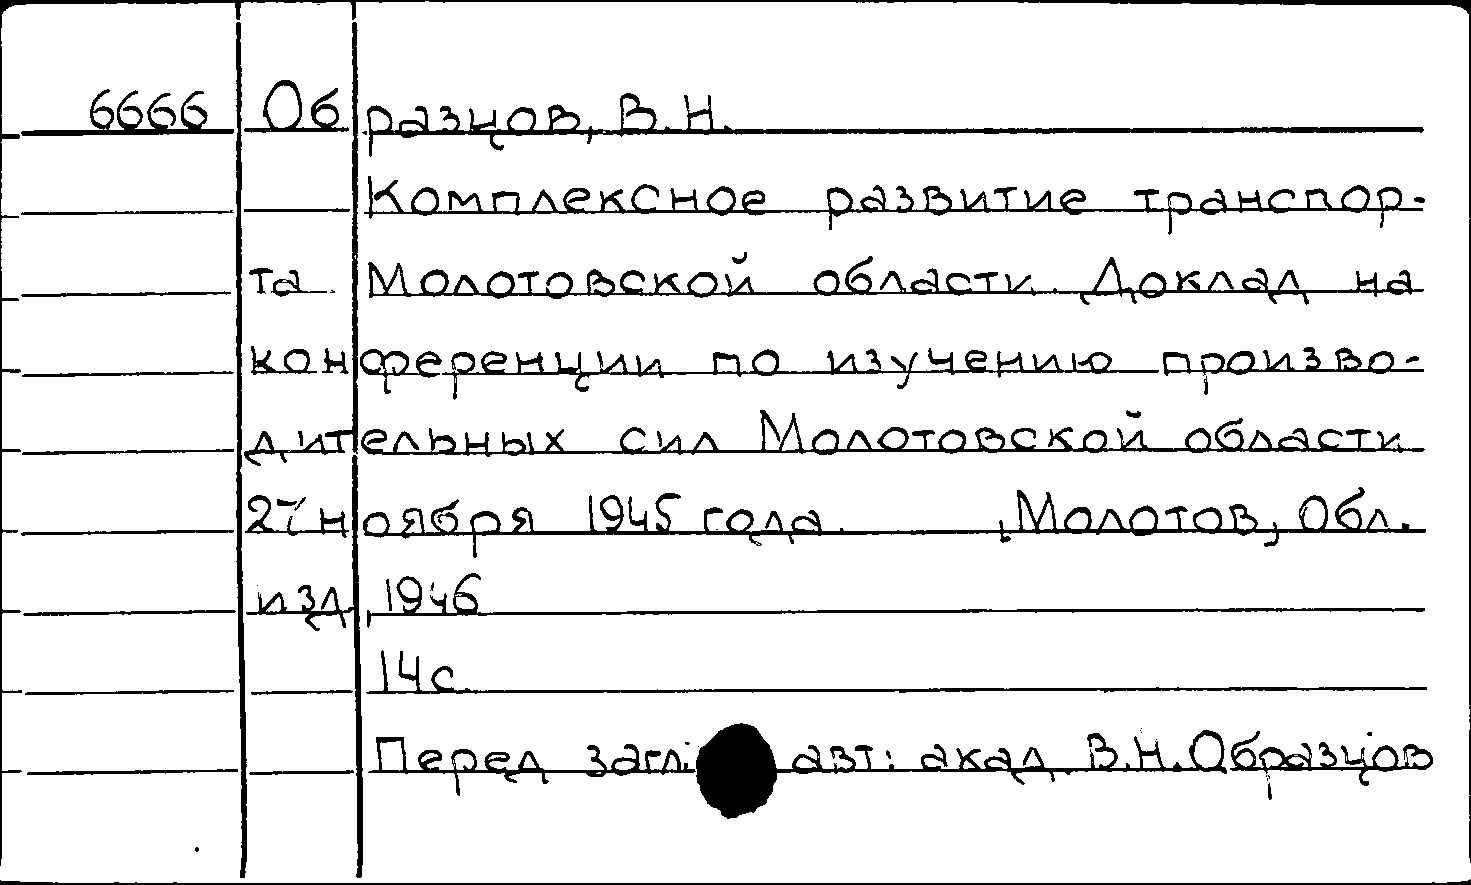 6666 Образцов, В.Н.
Комплексное развитие транспор-
та Молотовской области. Доклад на
конференции по изучению произво-
дительных сил Молотовской области
27 ноября 1945 года. , Молотов, Обл.
изд, 1946
14с.
Перед загл. авт: акад. В.Н.Образцов